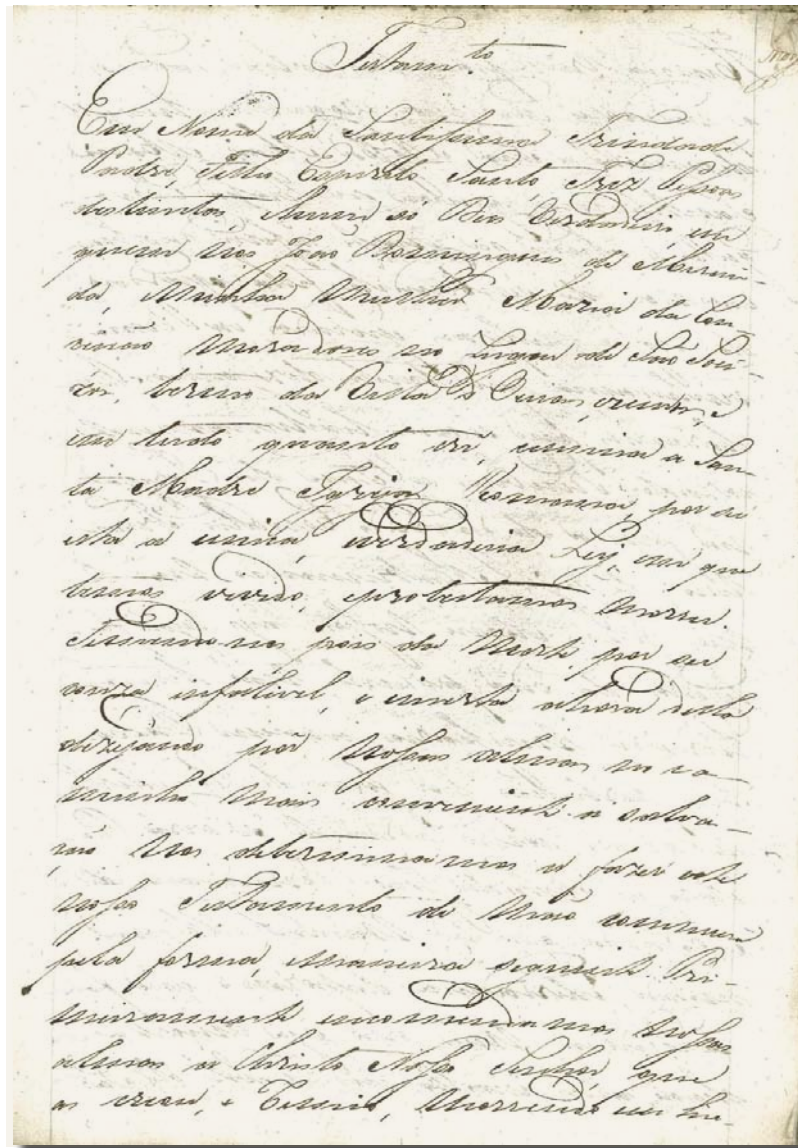 Testam.to
Em Nome da Santissima Trindade
Padre, Filho Espirito Santo, Trez Pessoas
destintas, hum só Deos Verdadeiro, em
quem nos João Domingues de Miran-
da, e minha Mulher Maria da Con-
ceicão moradores no Lugar de São
termo da Villa de cremos, e
em tudo quanto crê, e ensina a San-
ta Madre Igreja Romana, por ser
esta a unica, e verdadeira Ley, em que
temos vivido, e protestamos morrer.
Temendo nos pois da Morte, por ser
couza infalivel, e incerta a hora della
dezejando pôr nossas almas no ca-
minho mais conveniente a salva-
ção nos determinamos a fazer este
nosso Testamento de mão commum
pela forma, e maneira seguinte. Pri-
meiramente encomendamos nossas
almas a Christo Nosso Senhor, que
as creou, e morrendo em hu-